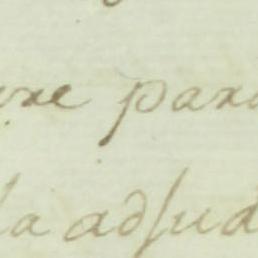 ere para
la adjud